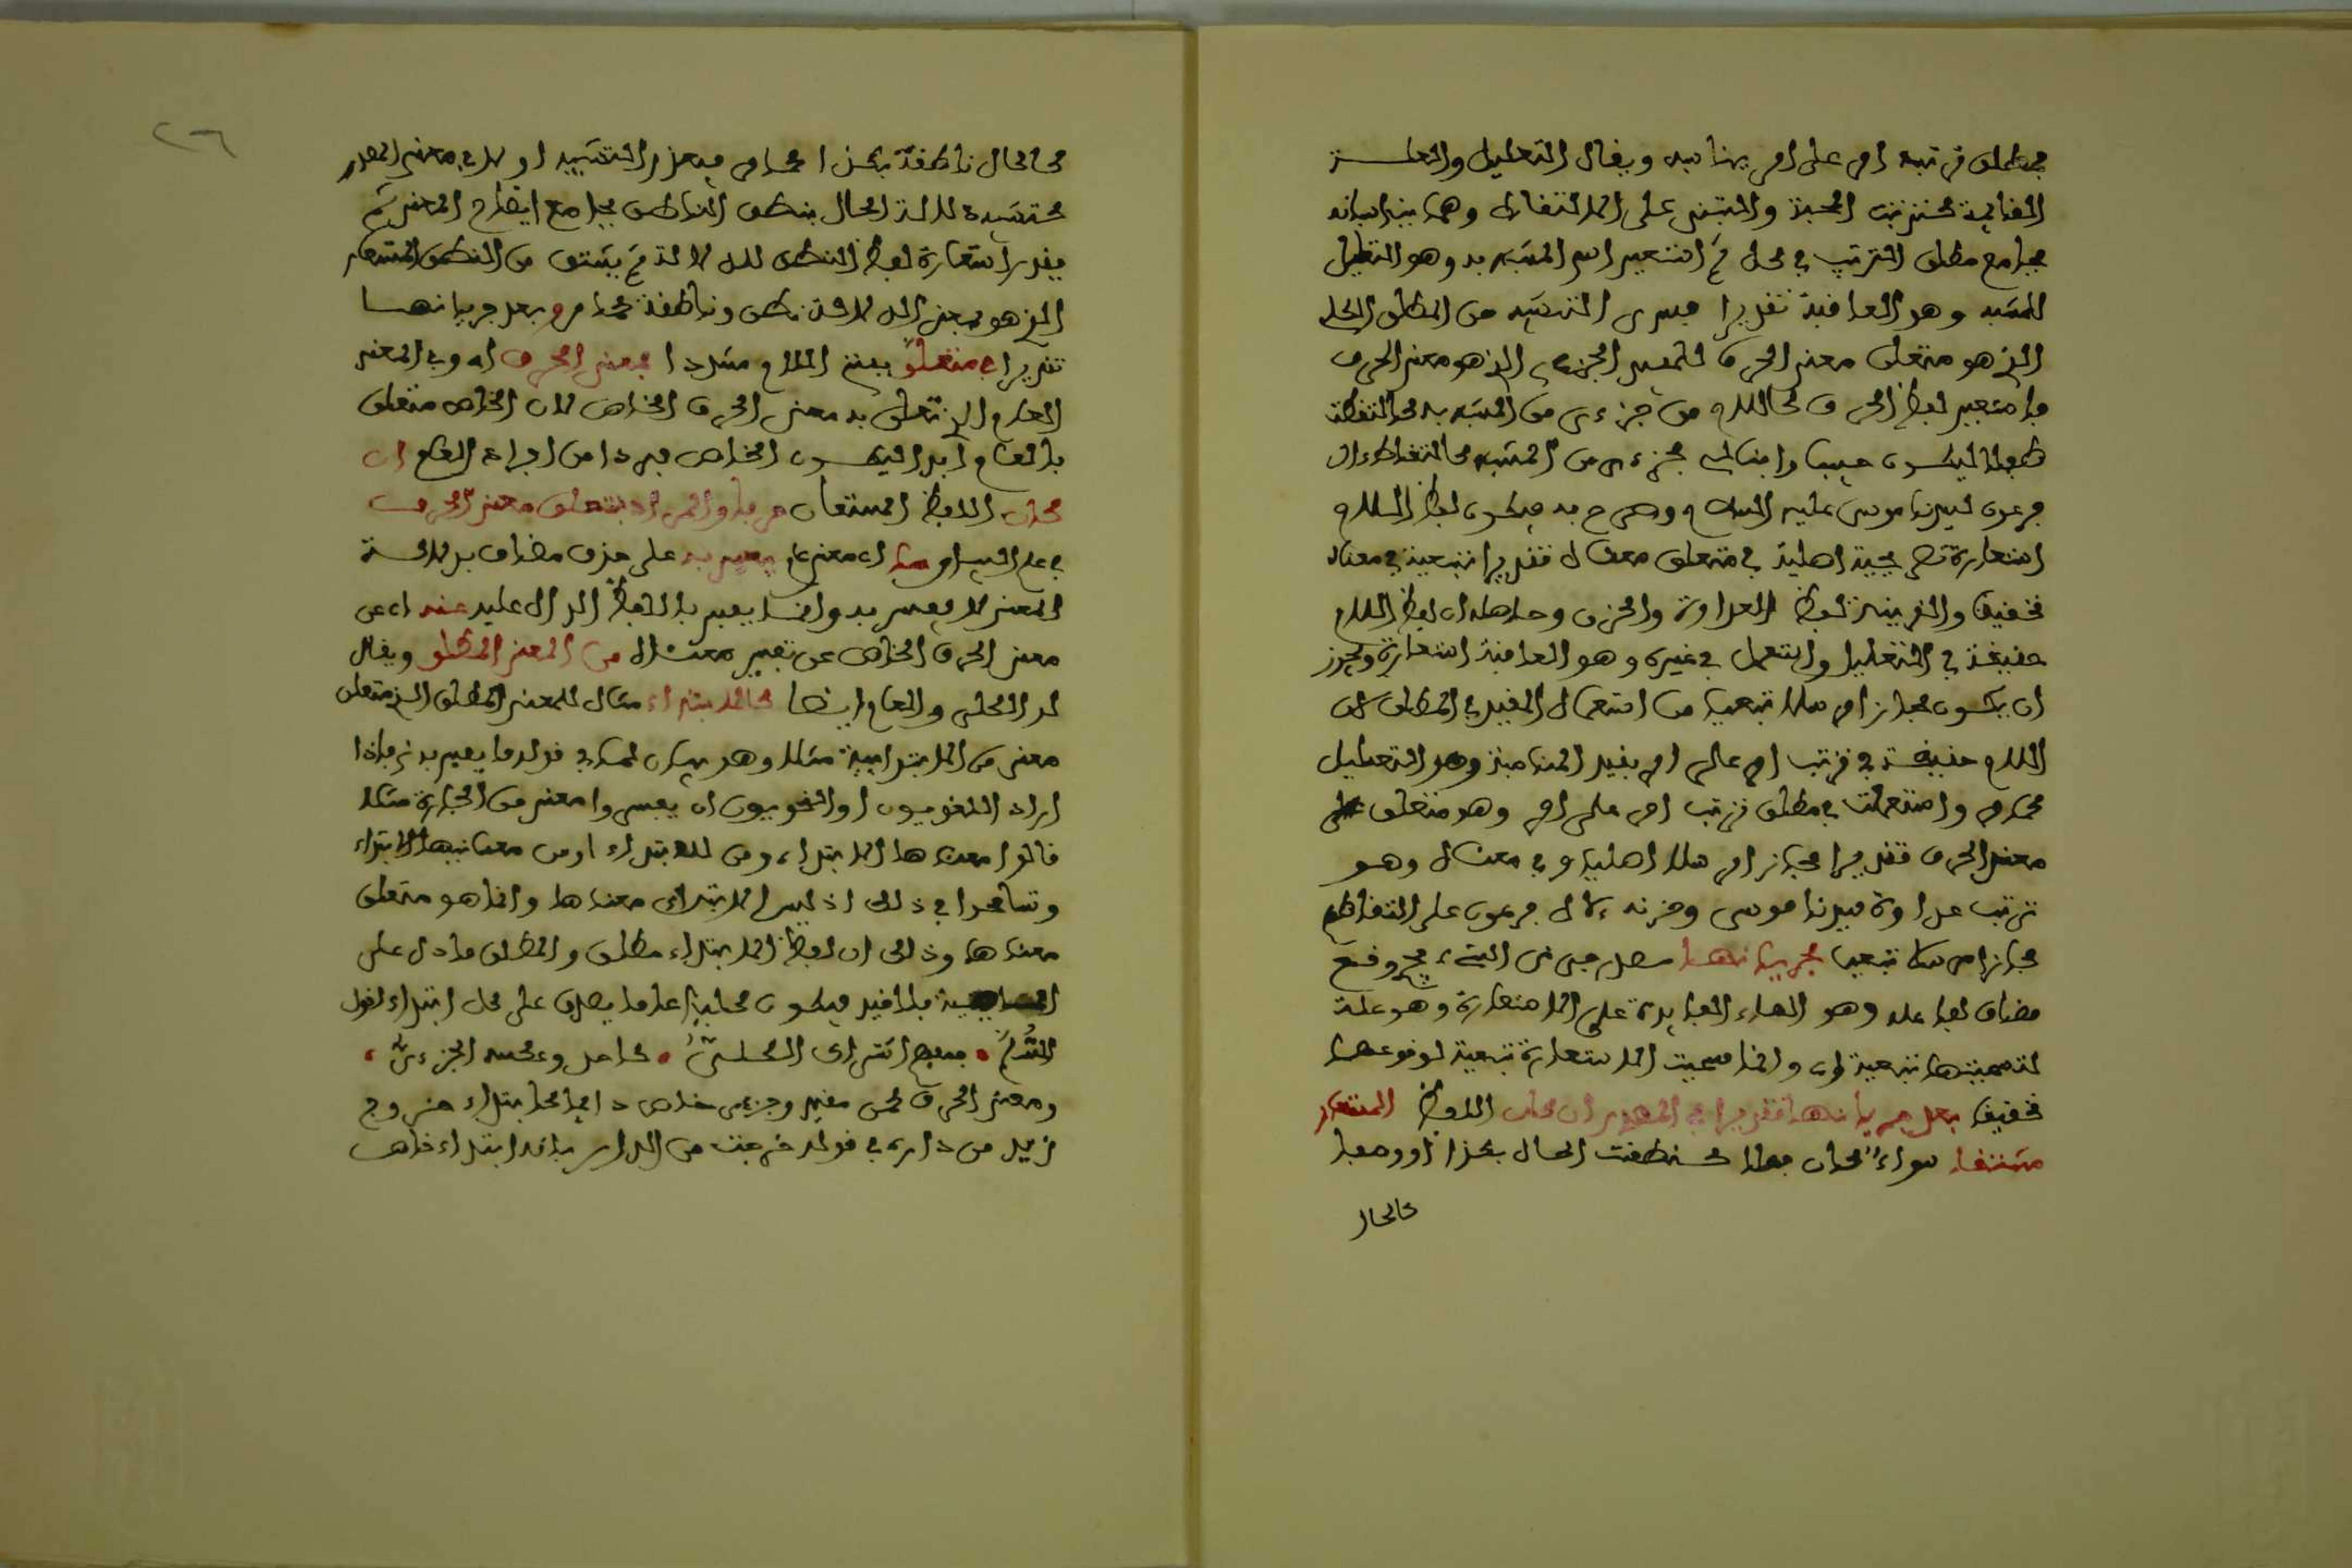 بمطلق ترتب امر على امر يناسبه ويقال التعليل والعلة
الغائية كترتب المحبة والتبني على الالتقاط وهما ينباسانه
بجامع مطلق الترتب في كل ثم استعير اسم المشبه به وهو التعليل
للمشبه وهو العاقبة تقديرا فسرى التشبيه من المطلق الكلي
الذي هو متعلق معنى الحرف للمقيد الجزءي الذي هو معنى الحرف
فاستعير لفظ الحرف كاللام من جزءي من المشبه به كالتقاط
طفلا ليكون حبيبا وابنا لجزءي من المشبه كالتقاط ءال
فرعون لسيدنا موسى عليه السلام وصرح به فيكون لفظ اللام
استعارة تصريحية اصلية في متعلق معناه تقديرا تبعية في معناه
تحقيقا والقرينة لفظ العداوة والحزن وحاصله ان لفظ اللام
حقيقة في التعليل واستعمل في غيره وهو العاقبة استعارة ويجوز
ان يكون مجازا مرسلا تبعيا من استعمال المقيد في المطلق لان
اللام حقيقة في ترتب امر على امر بقيد المناسبة وهو التعليل
كما مر واستعملت في مطلق ترتب امر على امر وهو متعلق
معنى الحرف تقديرا مجازا مرسلا اصليا وفي معناه وهو
ترتب عداوة سيدنا موسى وحزنه ءال فرعون على التقاطهم
مجازا مرسلا تبعيا لجريانها مصدر جرى الشيء يجري وقع
مضاف لفاعله وهو الهاء العايدة على الاستعارة وهو علة
لتسميتها تبعية اي وانما سميت الاستعارة تبعية لوقوعها
تحقيقا بعد جريانها تقديرا في المصدر ان كان اللفظ المستعار
مشتقا سواء كان فعلا كنطقت الحال بكذا او وصفا
كالحال
كالحال ناطقة بكذا كما مر فيقدر التشبيه اولا في معنى المصدر
كتشبيه دلالة الحال بنطق الناطق بجامع ايضاح المعنى ثم
يقدر استعارة لفظ النطق للدلالة ثم يشتق من النطق المستعار
الذي هو بمعنى الدلالة نطق وناطقة كما مر وبعد جريانها
تقديرا في متعلق بفتح اللام مشددا لمعنى الحرف اي وفي المعنى
العام الذي تعلق به معنى الحرف الخاص لان الخاص متعلق
بالعام ابدا ليكون الخاص فردا من افراد العام ان
كان اللفظ المستعار حرفا والمراد بمتعلق معنى الحرف
في علم البيان ما اي معنى عام يعبر به على حذف مضاف بدلالة
المعنى لا يعبر به وانما يعبر باللفظ الدال عليه عنه اي عن
معنى الحرف الخاص عن تعبير معناه من المعنى المطلق ويقال
له الكلي والعام ايضا كالابتداء مثال للمعنى المطلق الذي متعلق
معنى من الابتدائية مثلا وهو بيان لما في قوله ما يعبر به فاذا
اراد اللغويون او النحويون ان يفسروا معنى من الجارة مثلا
قالوا معناها الابتداء ومن للابتداء او من معانيها الابتداء
وتسامحوا في ذلك اذ ليس الابتداء معناها وانما هو متعلق
معناها وذلك ان لفظ الابتداء مطلق والمطلق ما دل على
الماهية بلا قيد فيكون كليا عاما يصدق على كل ابتداء لقول
السلم • فمفهم اشتراك الكلي • كاسد وعكسه الجزءي •
ومعنى الحرف كمن مقيد وجزءي خاص دايما كابتداء خروج
زيد من داره في قولك خرجت من الدار بانه ابتداء خاص
٢٦